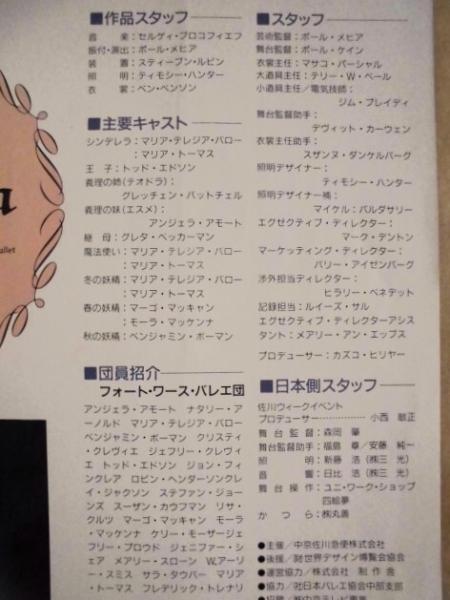 a
allet
■作品スタッフ
音　楽：セルゲィ・プロコフィエフ
振付・演出：ポール・メヒア
装　置：スティーブン・ルビン
照　明：ティモシー・ハンター
衣　裳：ベン・ベンソン
■主要キャスト
シンデレラ：マリア・テレジア・バロー
：マリア・トーマス
王　子：トッド・エドソン
義理の姉（テオドラ）：
グレッチェン・バットチェル
義理の妹（エスメ）：
アンジェラ・アモート
継　母：グレタ・ベッカーマン
魔法使い：マリア・テレジア・バロー
：マリア・トーマス
冬の妖精：マリア・テレジア・バロー
：マリア・トーマス
春の妖精：マーゴ・マッキャン
：モーラ・マッケンナ
秋の妖精：ベンジャミン・ボーマン
■団員紹介
フォート・ワース・バレエ団
アンジェラ・アモート　ナタリー・ア
ーノルド　マリア・テレジア・バロー
ベンジャミン・ボーマン　クリスティ
・クレヴィエ　ジェフリー・クレヴィ
エ　トッド・エドソン　ジョン・フィ
ンクレア　ロビン・ヘンダーソンクレ
イ・ジャクソン　ステファン・ジョー
ンズ　スーザン・カウフマン　リサ・
クルツ　マーゴ・マッキャン　モーラ
・マッケンナ　ケリー・モーザージェ
フリー・プロウド　ジェニファー・シ
ェア　メアリー・スローン　W.アーリ
ー・スミス　サラ・タウバー　マリア
・トーマス　フレデリック・トレナリ
■スタッフ
芸術監督：ポール・メヒア
舞台監督：ポール・ケイン
衣裳主任：マサコ・パーシャル
大道具主任：テリー・W・ベール
小道具主任／電気技師：
ジム・ブレイディ
舞台監督助手：
デヴィット・カーウェン
衣裳主任助手：
スザンヌ・ダンケルバーグ
照明デザイナー：
ティモシー・ハンター
照明デザイナー補：
マイケル・バルダサリー
エグゼクティブ・ディレクター：
マーク・デントン
マーケッティング・ディレクター：
バリー・アイゼンバーグ
渉外担当ディレクター：
ヒラリー・ベネデット
記録担当：ルイーズ・サル
エグゼクティブ・ディレクターアシス
タント：メアリー・アン・エップス
プロデューサー：カズコ・ヒリヤー
■日本側スタッフ
佐川ウィークイベント
プロデューサー…………小西　敏正
舞台監督：森岡　肇
舞台監督助手：福島　章／安藤　純一
照　明：新藤　浩（㈱三　光）
音　響：日比　浩（㈱三　光）
舞台操作：ユニ・ワーク・ショップ
四絵夢
かつら：㈱丸善
●主催／中京佐川急便株式会社
●後援／㈶世界デザイン博覧会協会
●運営協力／株式会社　制作舎
●協力／㈳日本バレエ協会中部支部